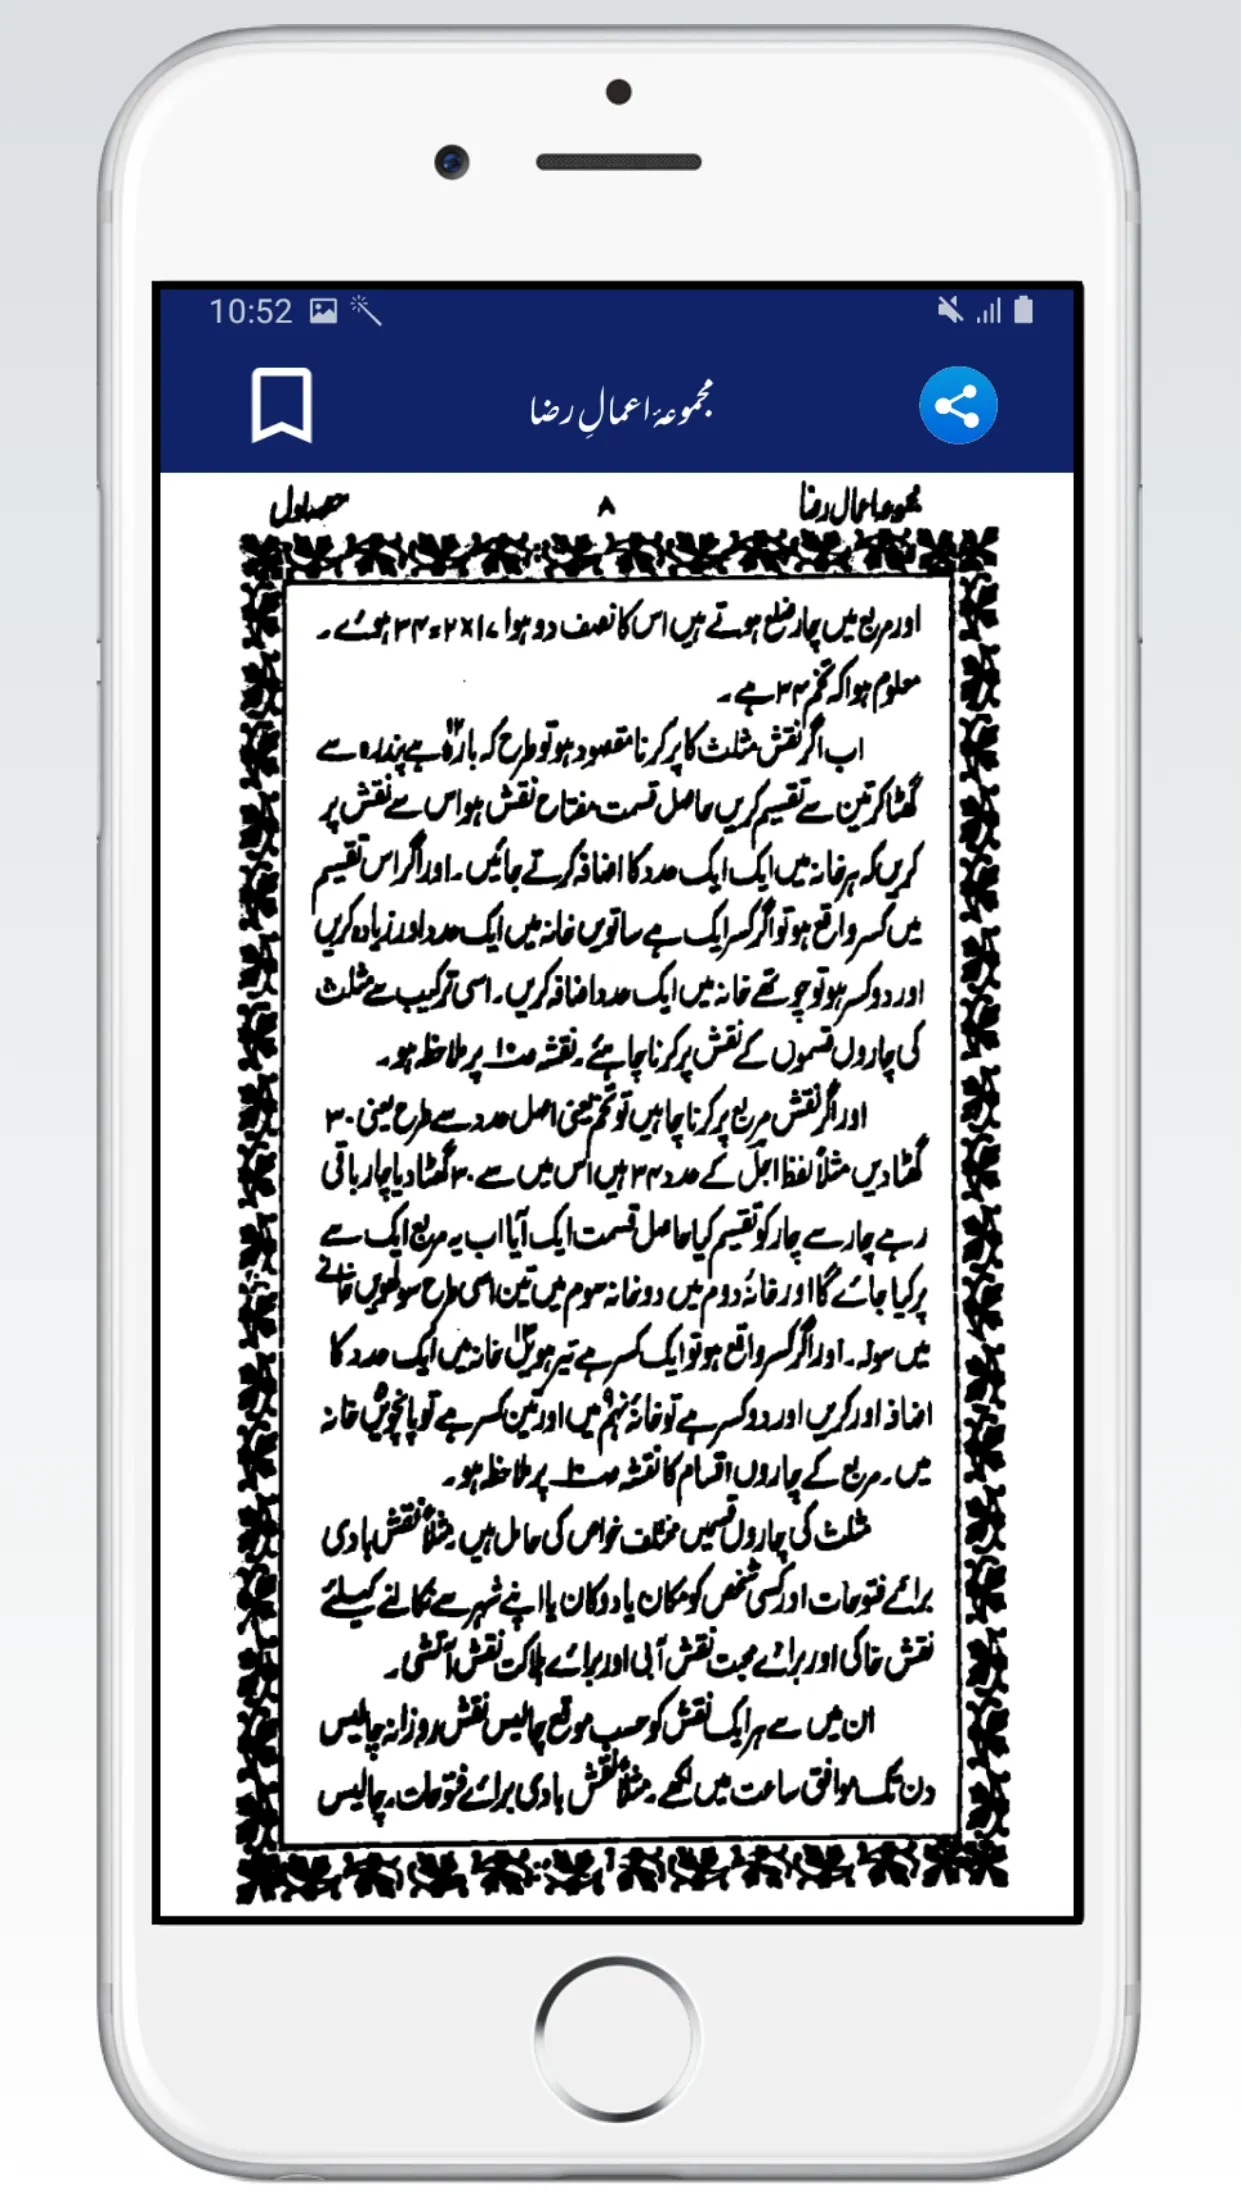 10:52
مجموعۂ اعمالِ رضا
مجموعہ اعمال رضا ۸ حصہ اول
اور مربع میں چار ضلع ہوتے ہیں اس کا نصف دو ہوا ۱۷×۲=۳۴ ہوئے۔
معلوم ہوا کہ تخم ۳۴ ہے۔
اب اگر نقش مثلث کا پر کرنا مقصود ہو تو طرح کہ بارہ۱۲ ہے پندرہ سے
گھٹا کر تین سے تقسیم کریں حاصل قسمت مفتاح نقش ہو اس سے نقش پر
کریں کہ ہر خانہ میں ایک ایک عدد کا اضافہ کرتے جائیں۔ اور اگر اس تقسیم
میں کسر واقع ہو تو اگر کسر ایک ہے ساتویں خانہ میں ایک عدد اور زیادہ کریں
اور دو کسر ہو تو چوتھے خانہ میں ایک عدد اضافہ کریں۔ اسی ترکیب سے مثلث
کی چاروں قسموں کے نقش پر کرنا چاہئے۔ نقشہ صـ۱۰ پر ملاحظہ ہو۔
اور اگر نقش مربع پر کرنا چاہیں تو تخم یعنی اصل عدد سے طرح یعنی ۳۰
گھٹا دیں مثلاً لفظ اجل کے عدد ۳۴ ہیں اس میں سے ۳۰ گھٹا دیا چار باقی
رہے چار سے چار کو تقسیم کیا حاصل قسمت ایک آیا اب یہ مربع ایک سے
پر کیا جائے گا اور خانۂ دوم میں دو خانہ سوم میں تین اسی طرح سولھویں خانے
میں سولہ۔ اور اگر کسر واقع ہو تو ایک کسر ہے تیرہویں۱۳ خانہ میں ایک عدد کا
اضافہ اور کریں اور دو کسر ہے تو خانۂ نہم۹ میں اور تین کسر ہے تو پانچویں۵ خانہ
میں۔ مربع کے چاروں اقسام کا نقشہ صـ۱۰ پر ملاحظہ ہو۔
مثلث کی چاروں قسمیں مختلف خواص کی حامل ہیں۔ مثلاً نقش بادی
برائے فتوحات اور کسی شخص کو مکان یا دوکان یا اپنے شہر سے نکالنے کیلئے
نقش خاکی اور برائے محبت نقش آبی اور برائے ہلاکت نقش آتشی۔
ان میں سے ہر ایک نقش کو حسب موقع چالیس نقش روزانہ چالیس
دن تک موافق ساعت میں لکھے۔ مثلاً نقش بادی برائے فتوحات۔ چالیس